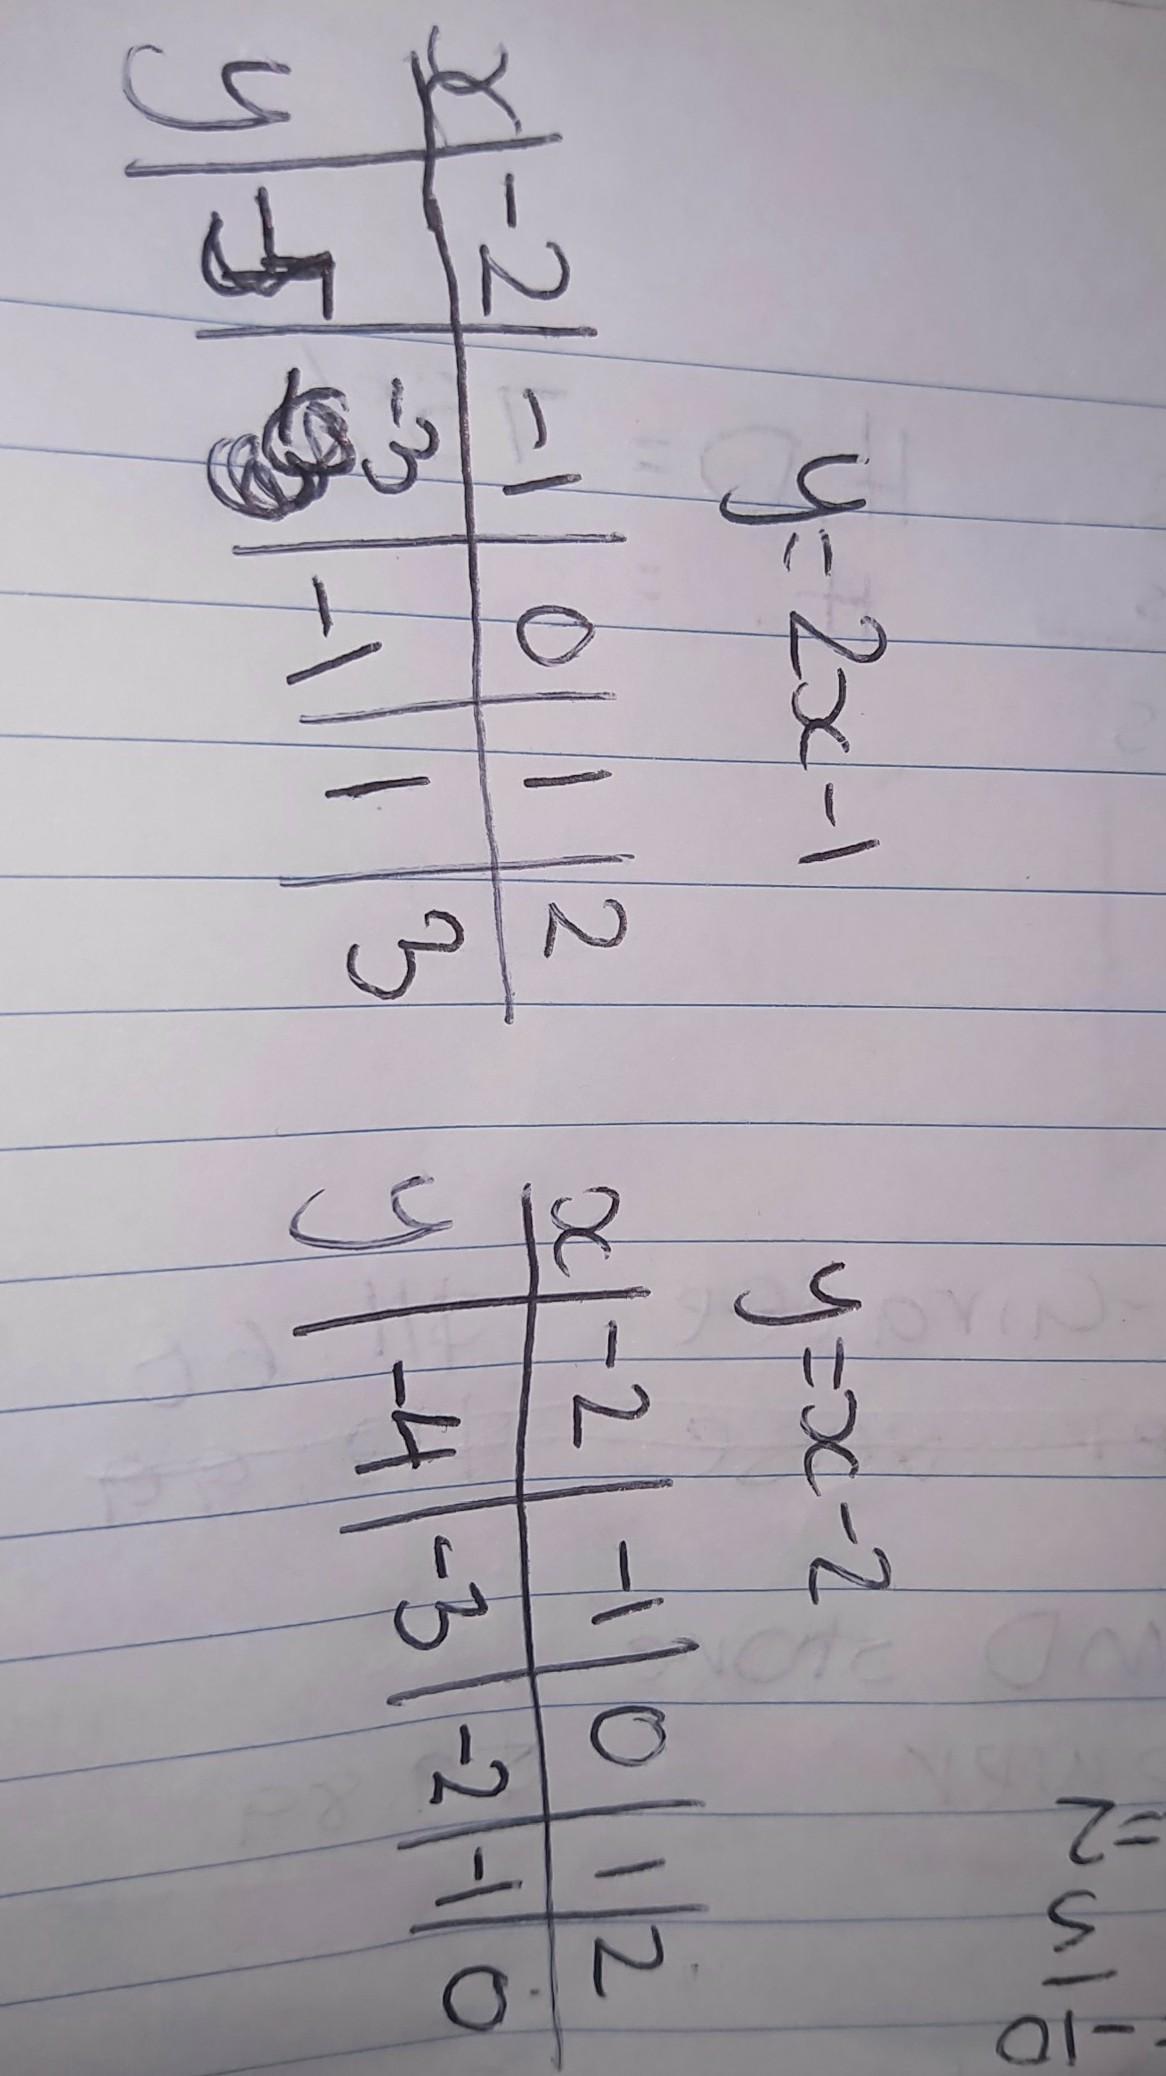 y = 2x - 1
x | -2 | -1 | 0 | 1 | 2
y | -5 | -3 | -1 | 1 | 3
y = x - 2
x | -2 | -1 | 0 | 1 | 2
y | -4 | -3 | -2 | -1 | 0